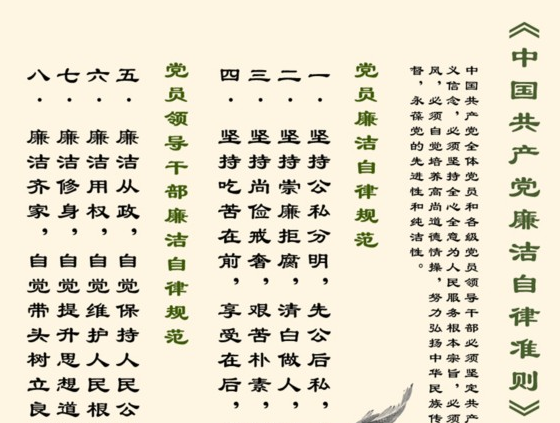 《中国共产党廉洁自律准则》
中国共产党全体党员和各级党员领导干部必须坚定共产
义信念，必须坚持全心全意为人民服务根本宗旨，必须
风，必须自觉培养高尚道德情操，努力弘扬中华民族传
督，永葆党的先进性和纯洁性。
党员廉洁自律规范
一．坚持公私分明，先公后私，
二．坚持崇廉拒腐，清白做人，
三．坚持尚俭戒奢，艰苦朴素，
四．坚持吃苦在前，享受在后，
党员领导干部廉洁自律规范
五．廉洁从政，自觉保持人民公
六．廉洁用权，自觉维护人民根
七．廉洁修身，自觉提升思想道
八．廉洁齐家，自觉带头树立良